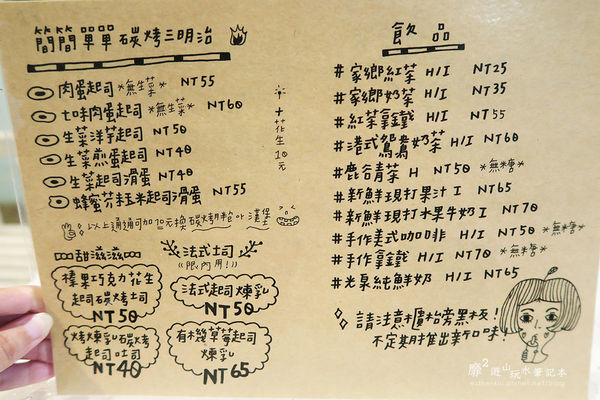 簡簡單單碳烤三明治
肉蛋起司 *無生菜* NT55
七味肉蛋起司 *無生菜* NT60
生菜洋芋起司 NT50
生菜煎蛋起司 NT40
生菜起司滑蛋 NT40
蜂蜜芥末玉米起司滑蛋 NT55
+花生10元
以上通通可加10元換碳烤軔粉or漢堡
甜滋滋
榛果巧克力花生
起司碳烤土司
NT50
烤煉乳碳烤
起司吐司
NT40
法式土司
"限內用!"
法式起司煉乳
NT50
有機草莓起司
煉乳
NT65
飲品
#家鄉紅茶 H/I NT25
#家鄉奶茶 H/I NT35
#紅茶拿鐵 H/I NT55
#港式鴛鴦奶茶 H/I NT60
#鹿谷青茶 H NT50 *無糖*
#新鮮現打果汁 I NT65
#新鮮現打水果牛奶 I NT70
#手作美式咖啡 H/I NT50 *無糖*
#手作拿鐵 H/I NT70 *無糖*
#光泉純鮮奶 H/I NT65
請注意櫃枱旁黑板!
不定期推出新口味!
靡²遊山玩水筆記本